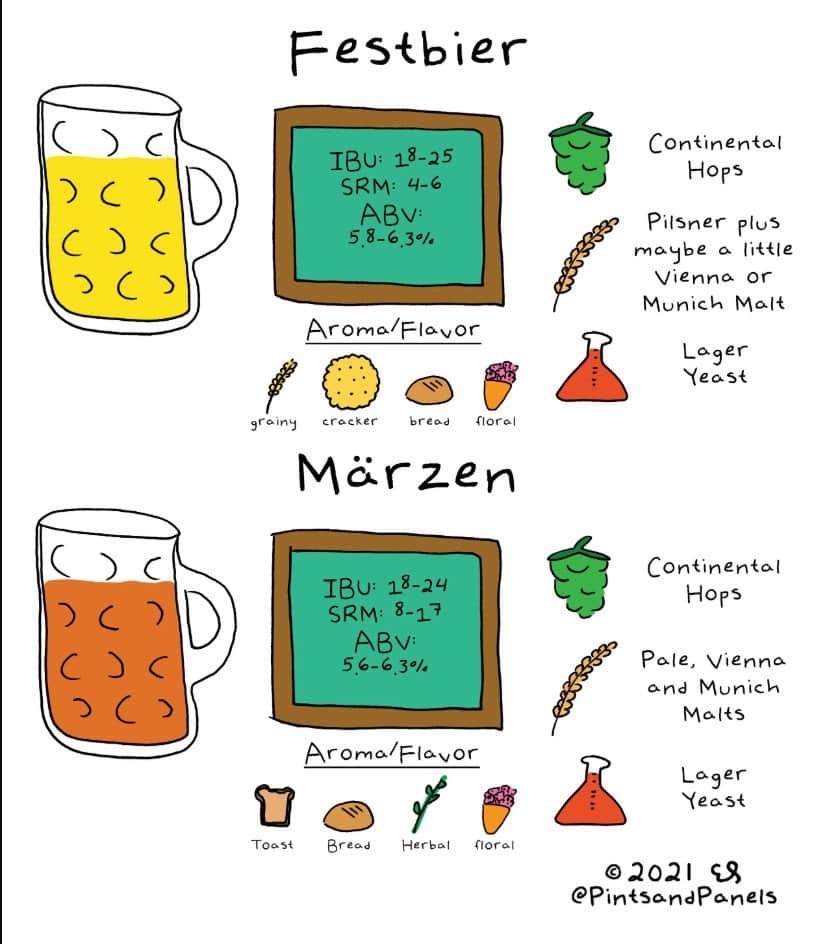 Festbier
IBU: 18-25
SRM: 4-6
ABV:
5.8-6.3%
Continental
Hops
Pilsner plus
maybe a little
Vienna or
Munich Malt
Lager
Yeast
Aroma/Flavor
grainy
cracker
bread
floral
Märzen
IBU: 18-24
SRM: 8-17
ABV:
5.6-6.3%
Continental
Hops
Pale, Vienna
and Munich
Malts
Lager
Yeast
Aroma/Flavor
Toast
Bread
Herbal
floral
© 2021
@PintsandPanels